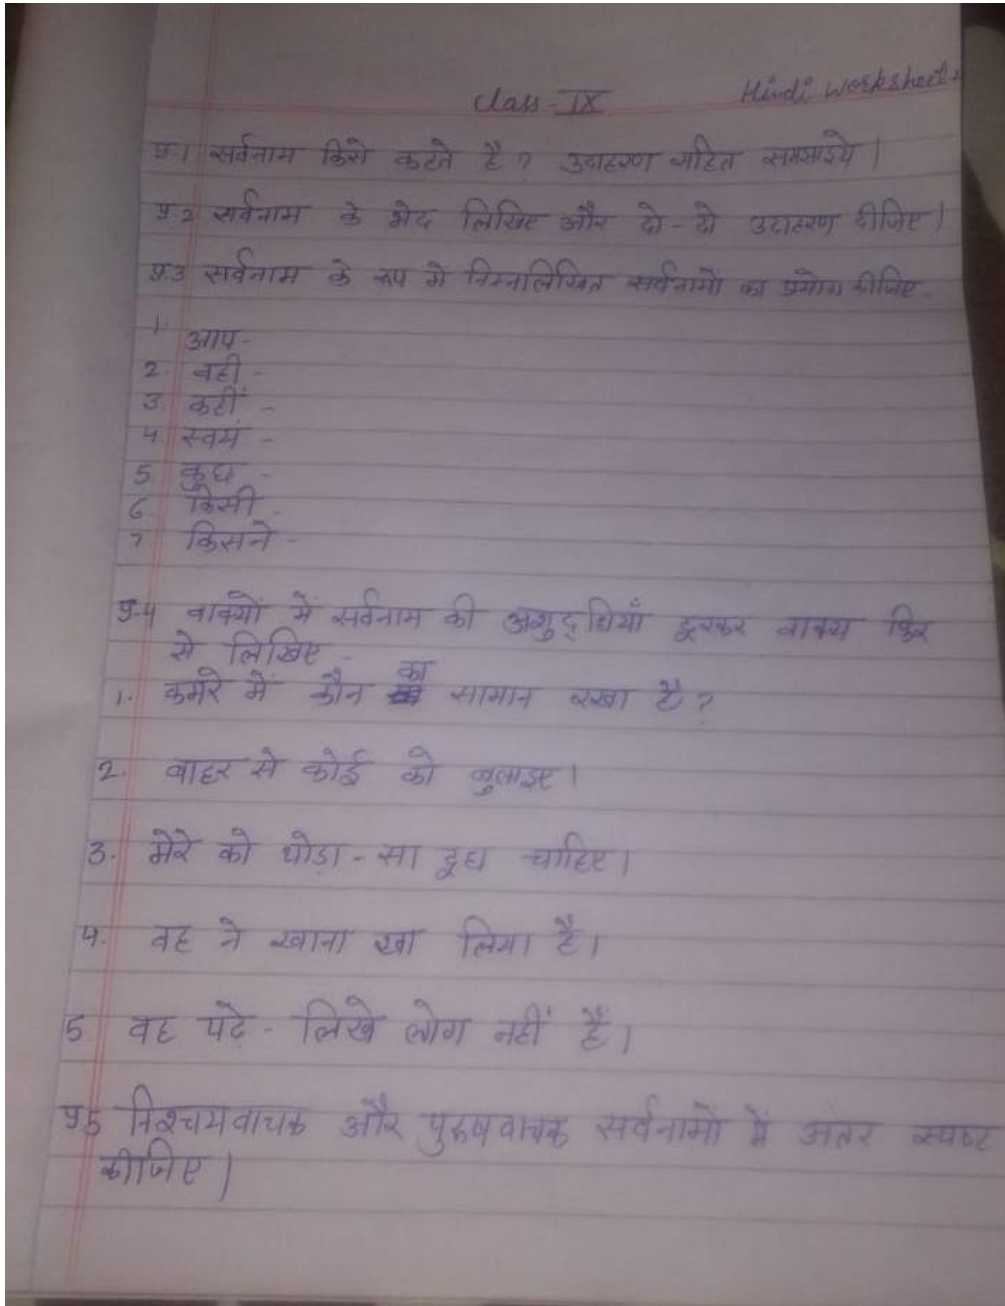 Class-IX Hindi Worksheet-2
प्र.1 सर्वनाम किसे कहते है ? उदाहरण सहित समझाइये |
प्र.2 सर्वनाम के भेद लिखिए और दो-दो उदाहरण दीजिए |
प्र.3 सर्वनाम के रूप में निम्नलिखित सर्वनामों का प्रयोग कीजिए-
1. आप-
2. वही-
3. कहीं-
4 स्वयं-
5 कुछ-
6 किसी-
7 किसने-
प्र.4 वाक्यों में सर्वनाम की अशुद्धियाँ दूरकर वाक्य फिर
से लिखिए-
1. कमरे में कौन का सामान रखा है ?
2. बाहर से कोई को बुलाइए |
3. मेरे को थोड़ा-सा दूध चाहिए |
4. वह ने खाना खा लिया है |
5 वह पढ़े-लिखे लोग नहीं हैं |
प्र.5 निश्चयवाचक और पुरुषवाचक सर्वनामों में अंतर स्पष्ट
कीजिए |